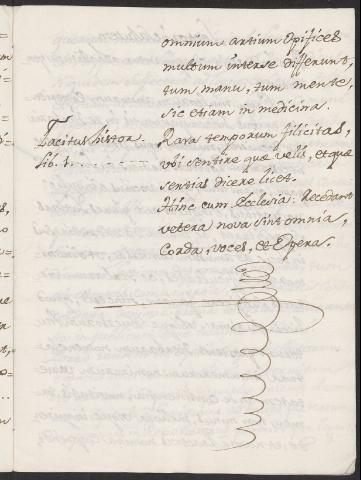 omnium artium Opifices
multum inter se differunt,
tum manu, tum mente,
sic etiam in medicina.
Tacitus histor.
lib. 1.
Rara temporum filicitas,
vbi sentire quæ velis, et quæ
sentias dicere licet.
Hinc cum Ecclesia. Recedant
vetera nova sint omnia,
Corda, voces, et Opera.